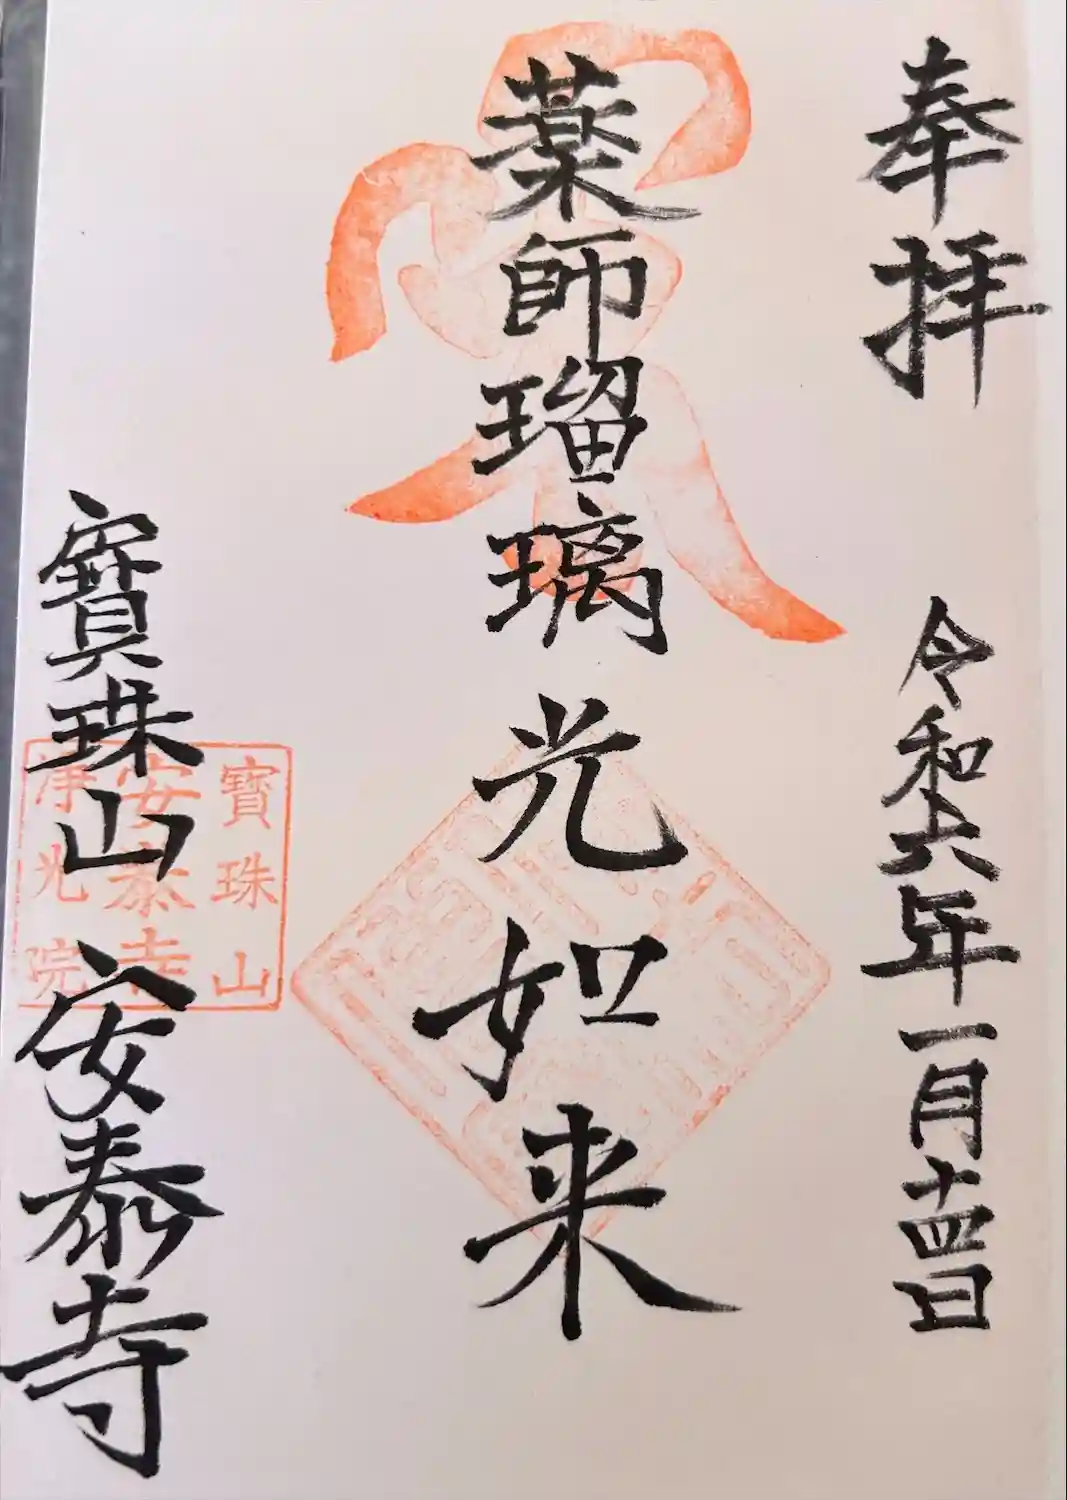 奉拝
令和六年一月十四日
薬師瑠璃光如来
寶珠山
安泰寺
寶珠山
安泰寺
淨光院